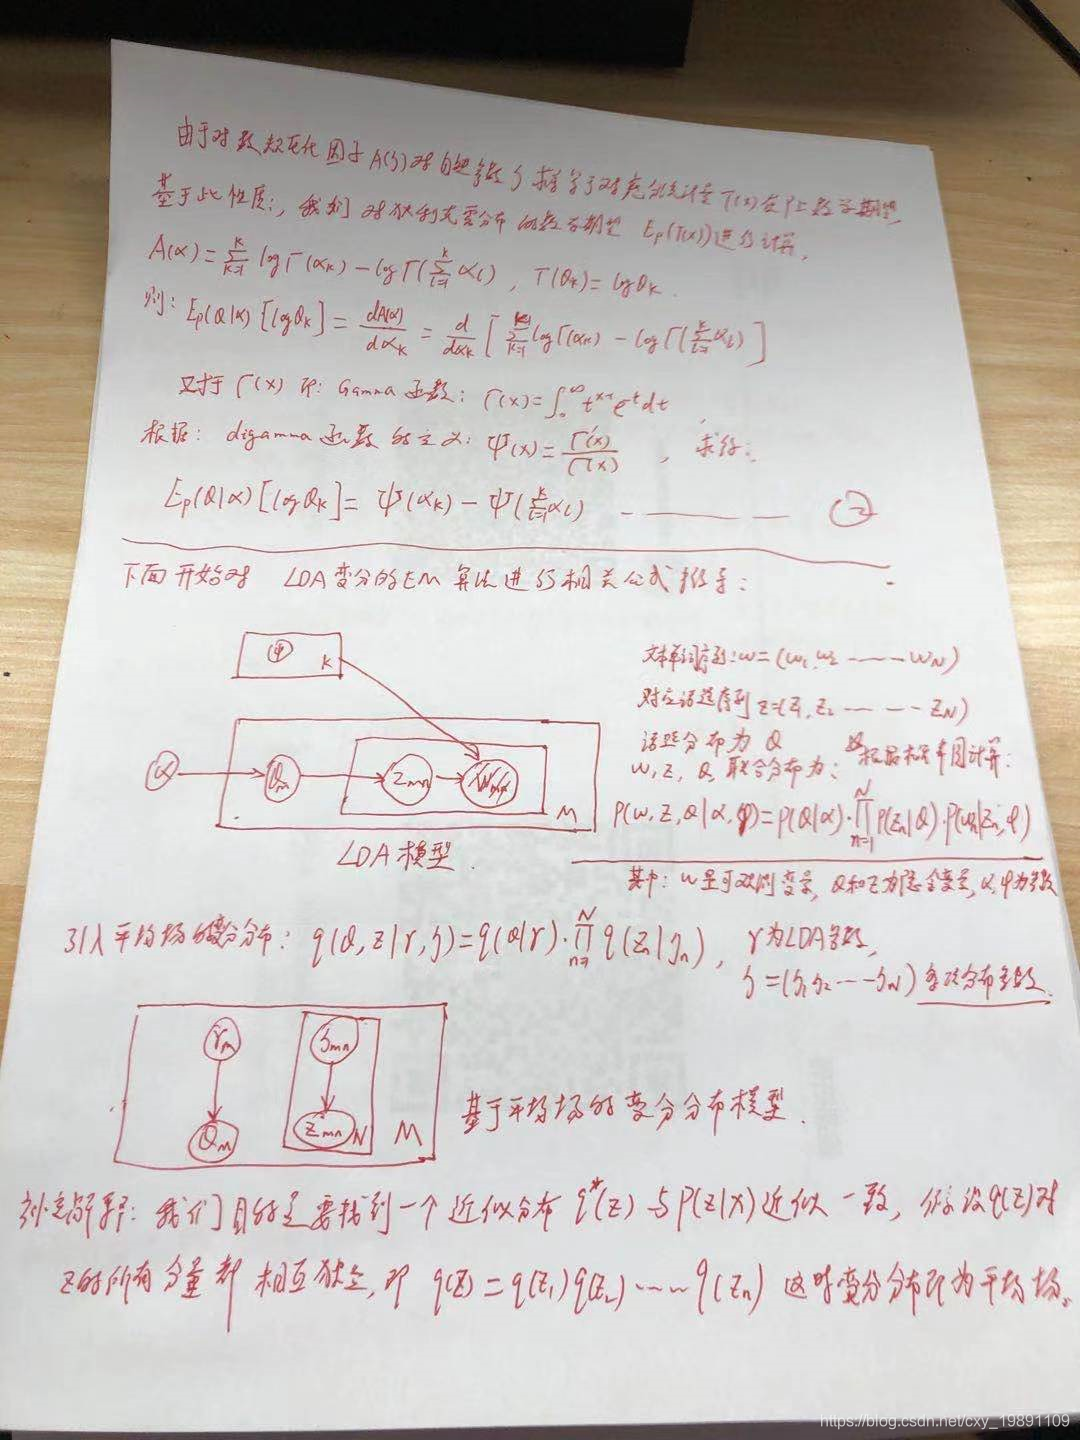 由于对数规范化因子A(ζ)对自然参数ζ求导等于对充分统计量T(x)在P上数学期望,
基于此性质:, 我们对狄利克雷分布的数学期望 Ep(T(x))进行计算,
A(α)=∑_{k=1}^{K} logΓ(αk)-logΓ(∑_{l=1}^{K}αl), T(θk)=logθk.
则: Ep(θ|α)[logθk]=dA(α)/dαk=d/dαk[∑_{k=1}^{K}logΓ(αk)-logΓ(∑_{l=1}^{K}αl)]
又对于Γ(x)即: Gamma 函数: Γ(x)=∫_0^∞ t^{x-1}e^{-t}dt
根据: digamma 函数的定义: Ψ(x)=Γ'(x)/Γ(x) , 求得:
Ep(θ|α)[logθk]=Ψ(αk)-Ψ(∑_{l=1}^{K}αl) - —— — ②
下面开始对 LDA变分的EM算法进行相关公式推导:
φ
K
α
θm
zmn
M
LDA模型.
文本单词序列:w=(w1,w2 ----- wN)
对应话题序列 z=(z1,z2 ----- zN)
话题分布为θ
w,z,θ,联合分布为: 根据概率图计算:
P(w,z,θ|α,φ)=P(θ|α)·∏_{n=1}^{N}P(zn|θ)·P(wn|zn,φ)
其中: w是可观测变量, θ和z为隐含变量, α,φ为参数
引入平均场的变分分布: q(θ,z|γ,ζ)=q(θ|γ)·∏_{n=1}^{N}q(zn|ζn), γ为LDA参数,
ζ=(ζ1ζ2----ζN)多项分布参数.
γm
ζmn
θm
zmn
N
M
基于平均场的变分分布模型.
补充解释: 我们目的是要找到一个近似分布q*(z)与P(z|x)近似一致, 假设q(z)对
z的所有分量都相互独立,即 q(z)=q(z1)q(z2)·····q(zn) 这时变分分布即为平均场。
https://blog.csdn.net/cxy_19891109